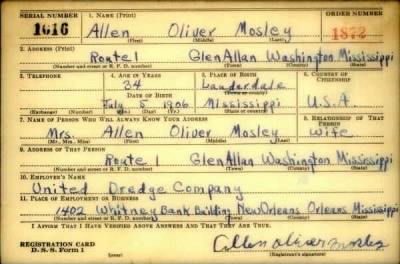 SERIAL NUMBER 1. NAME (Print) ORDER NUMBER
1616 Allen Oliver Mosley 1872
(First) (Middle) (Last)
2. ADDRESS (Print)
Route 1 GlenAllan Washington Mississippi
(Number and street or R. F. D. number) (Town) (County) (State)
3. TELEPHONE 4. AGE IN YEARS 5. PLACE OF BIRTH 6. COUNTRY OF CITIZENSHIP
34 Lauderdale
DATE OF BIRTH (Town or county)
July 5 1906 Mississippi U.S.A.
(Exchange) (Number) (Mo.) (Day) (Yr.) (State or country)
7. NAME OF PERSON WHO WILL ALWAYS KNOW YOUR ADDRESS 8. RELATIONSHIP OF THAT PERSON
Mrs. Allen Oliver Mosley Wife
(Mr., Mrs., Miss) (First) (Middle) (Last)
9. ADDRESS OF THAT PERSON
Route 1 GlenAllan Washington Mississippi
(Number and street or R. F. D. number) (Town) (County) (State)
10. EMPLOYER'S NAME
United Dredge Company
11. PLACE OF EMPLOYMENT OR BUSINESS
1402 Whitney Bank Building New Orleans Orleans Mississippi
(Number and street or R. F. D. number) (Town) (County) (State)
I AFFIRM THAT I HAVE VERIFIED ABOVE ANSWERS AND THAT THEY ARE TRUE.
REGISTRATION CARD
D. S. S. Form 1
Allen Oliver Mosley
(Registrant's signature)